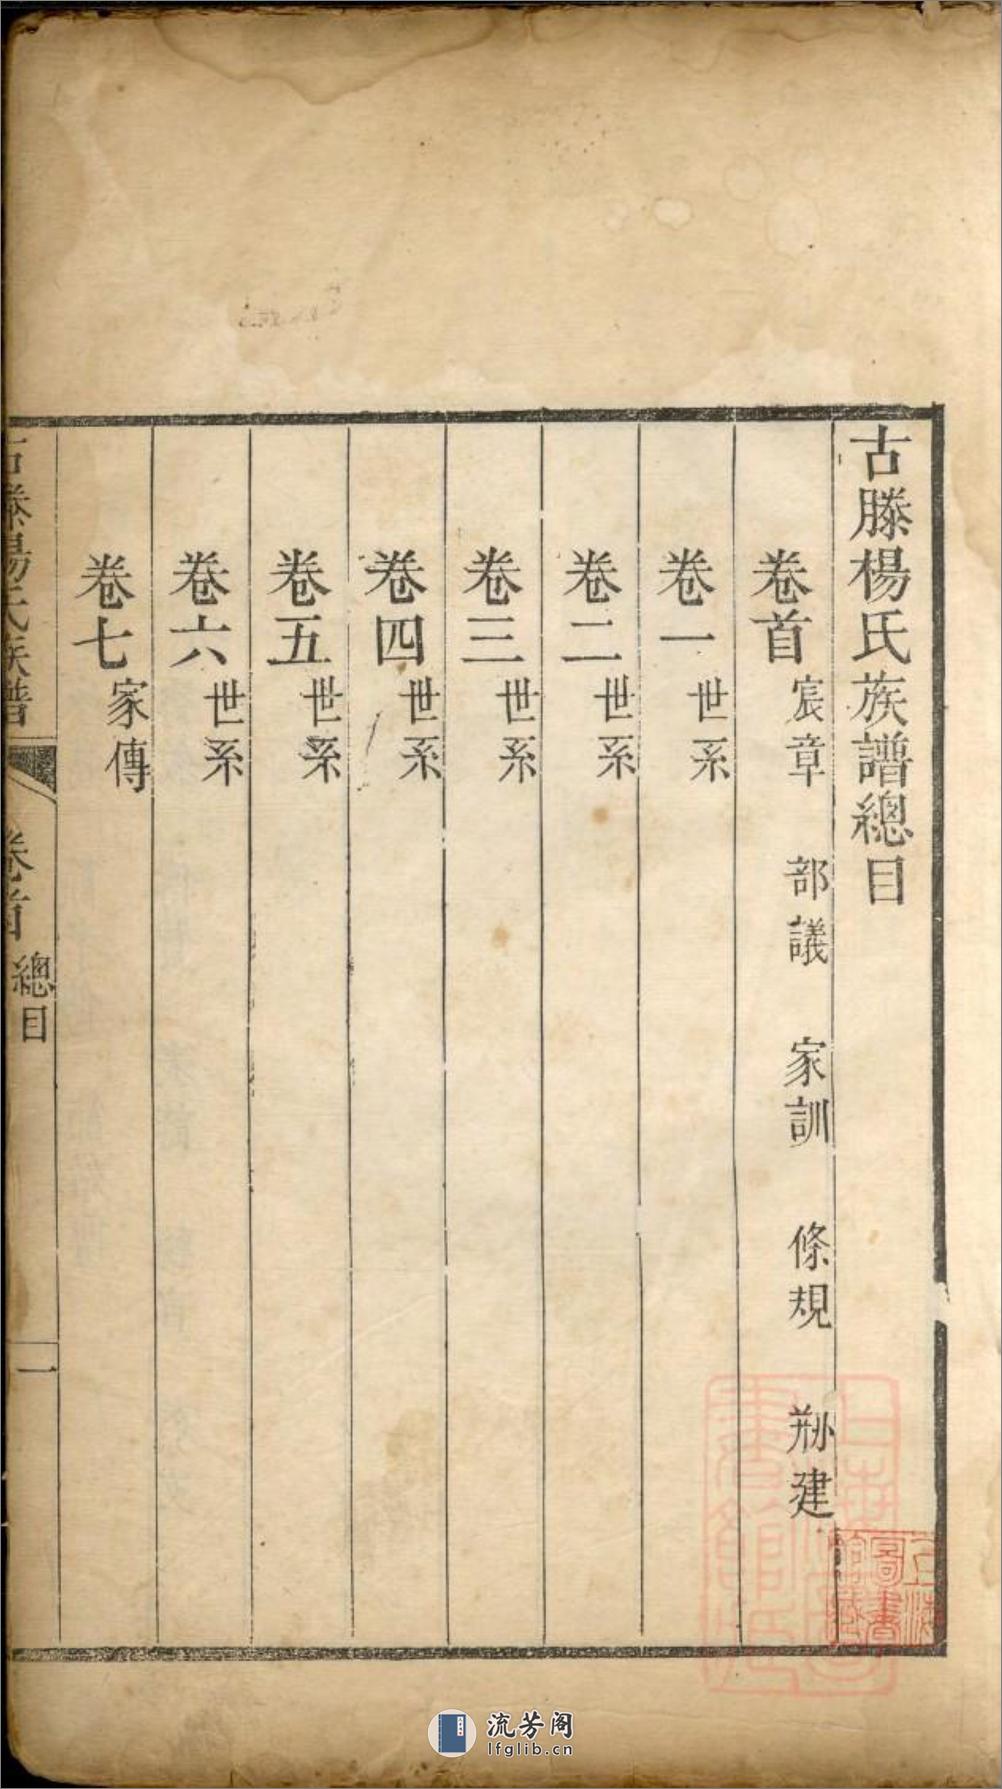 古滕楊氏族譜總目
卷首 宸章 部議 家訓 條規 剏建
卷一 世系
卷二 世系
卷三 世系
卷四 世系
卷五 世系
卷六 世系
卷七 家傳
古滕楊氏族譜 卷首 總目 一
上海圖書館藏
流芳阁
lfglib.cn